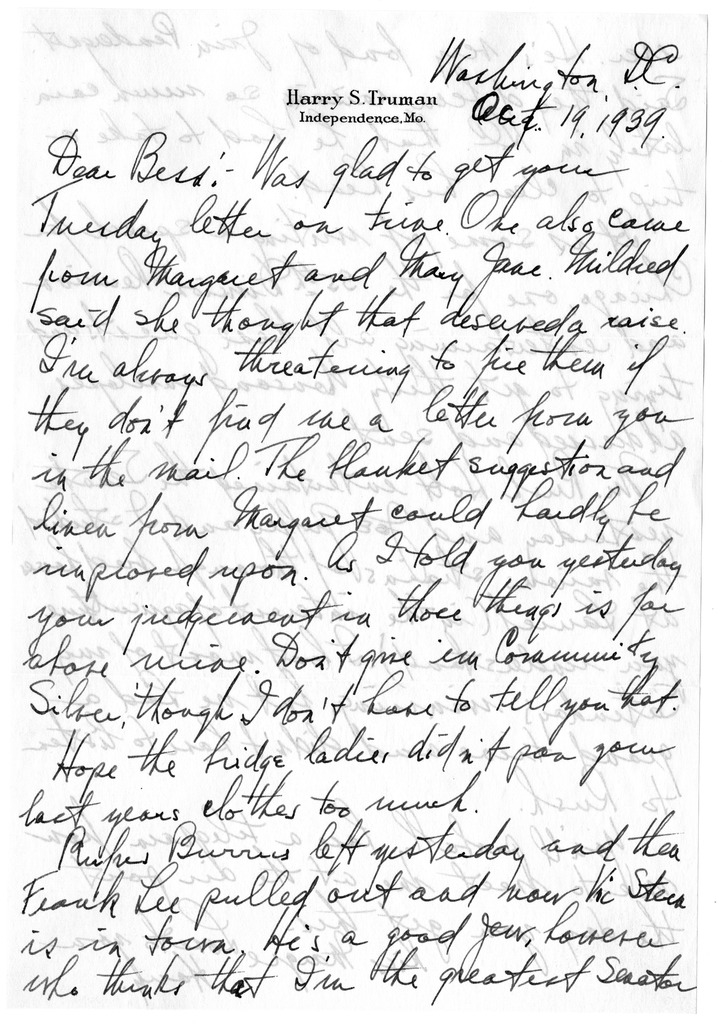 Washington, D.C.
Harry S. Truman
Independence, Mo.
Oct. 19, 1939.
Dear Bess:- Was glad to get your
Tuesday letter on time. One also came
from Margaret and Mary Jane. Mildred
said she thought that deserved a raise.
I'm always threatening to fire them if
they don't find me a letter from you
in the mail. The blanket suggestion and
linen from Margaret could hardly be
improved upon. As I told you yesterday
your judgement in those things is far
above mine. Don't give 'em Community
Silver, though I don't have to tell you that.
Hope the bridge ladies didn't pan your
last years clothes too much.
Rufus Burrus left yesterday and then
Frank Lee pulled out and now Vic Stein
is in town. He's a good Jew, however
who thinks that I'm the greatest Senator